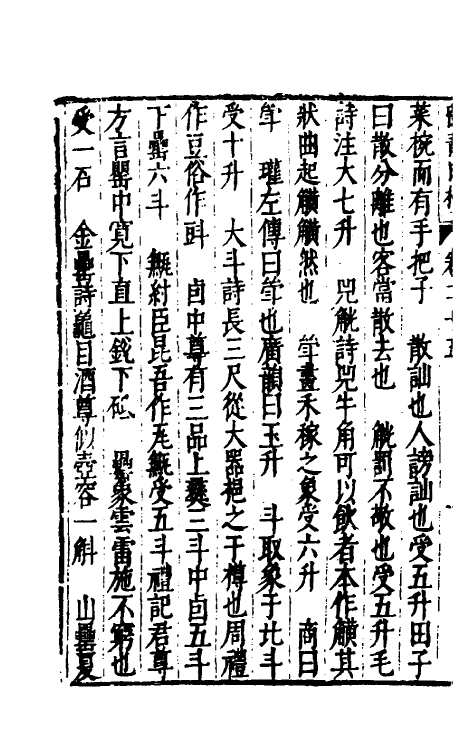 卷二十五
菜椀而有手把子　散訕也人謗訕也受五升田子
曰散分離也客當散去也　觥罰不敬也受五升毛
詩注大七升　兕觥詩兕牛角可以飲者本作觵其
狀曲起觵觵然也　斝畫禾稼之象受六升　商曰
斝　瓘左傳曰斝也廣韻曰玉升　斗取象于北斗
受十升　大斗詩長三尺從大器挹之于樽也周禮
作豆俗作㪷　卣中尊有三品上彝三斗中卣五斗
下罍六斗　甒紂臣昆吾作瓦甒受五斗禮記君尊
方言罌中寬下直上銳下砥　罍象雲雷施不窮也
受一石　金罍詩龜目酒尊似壺容一斛　山罍夏